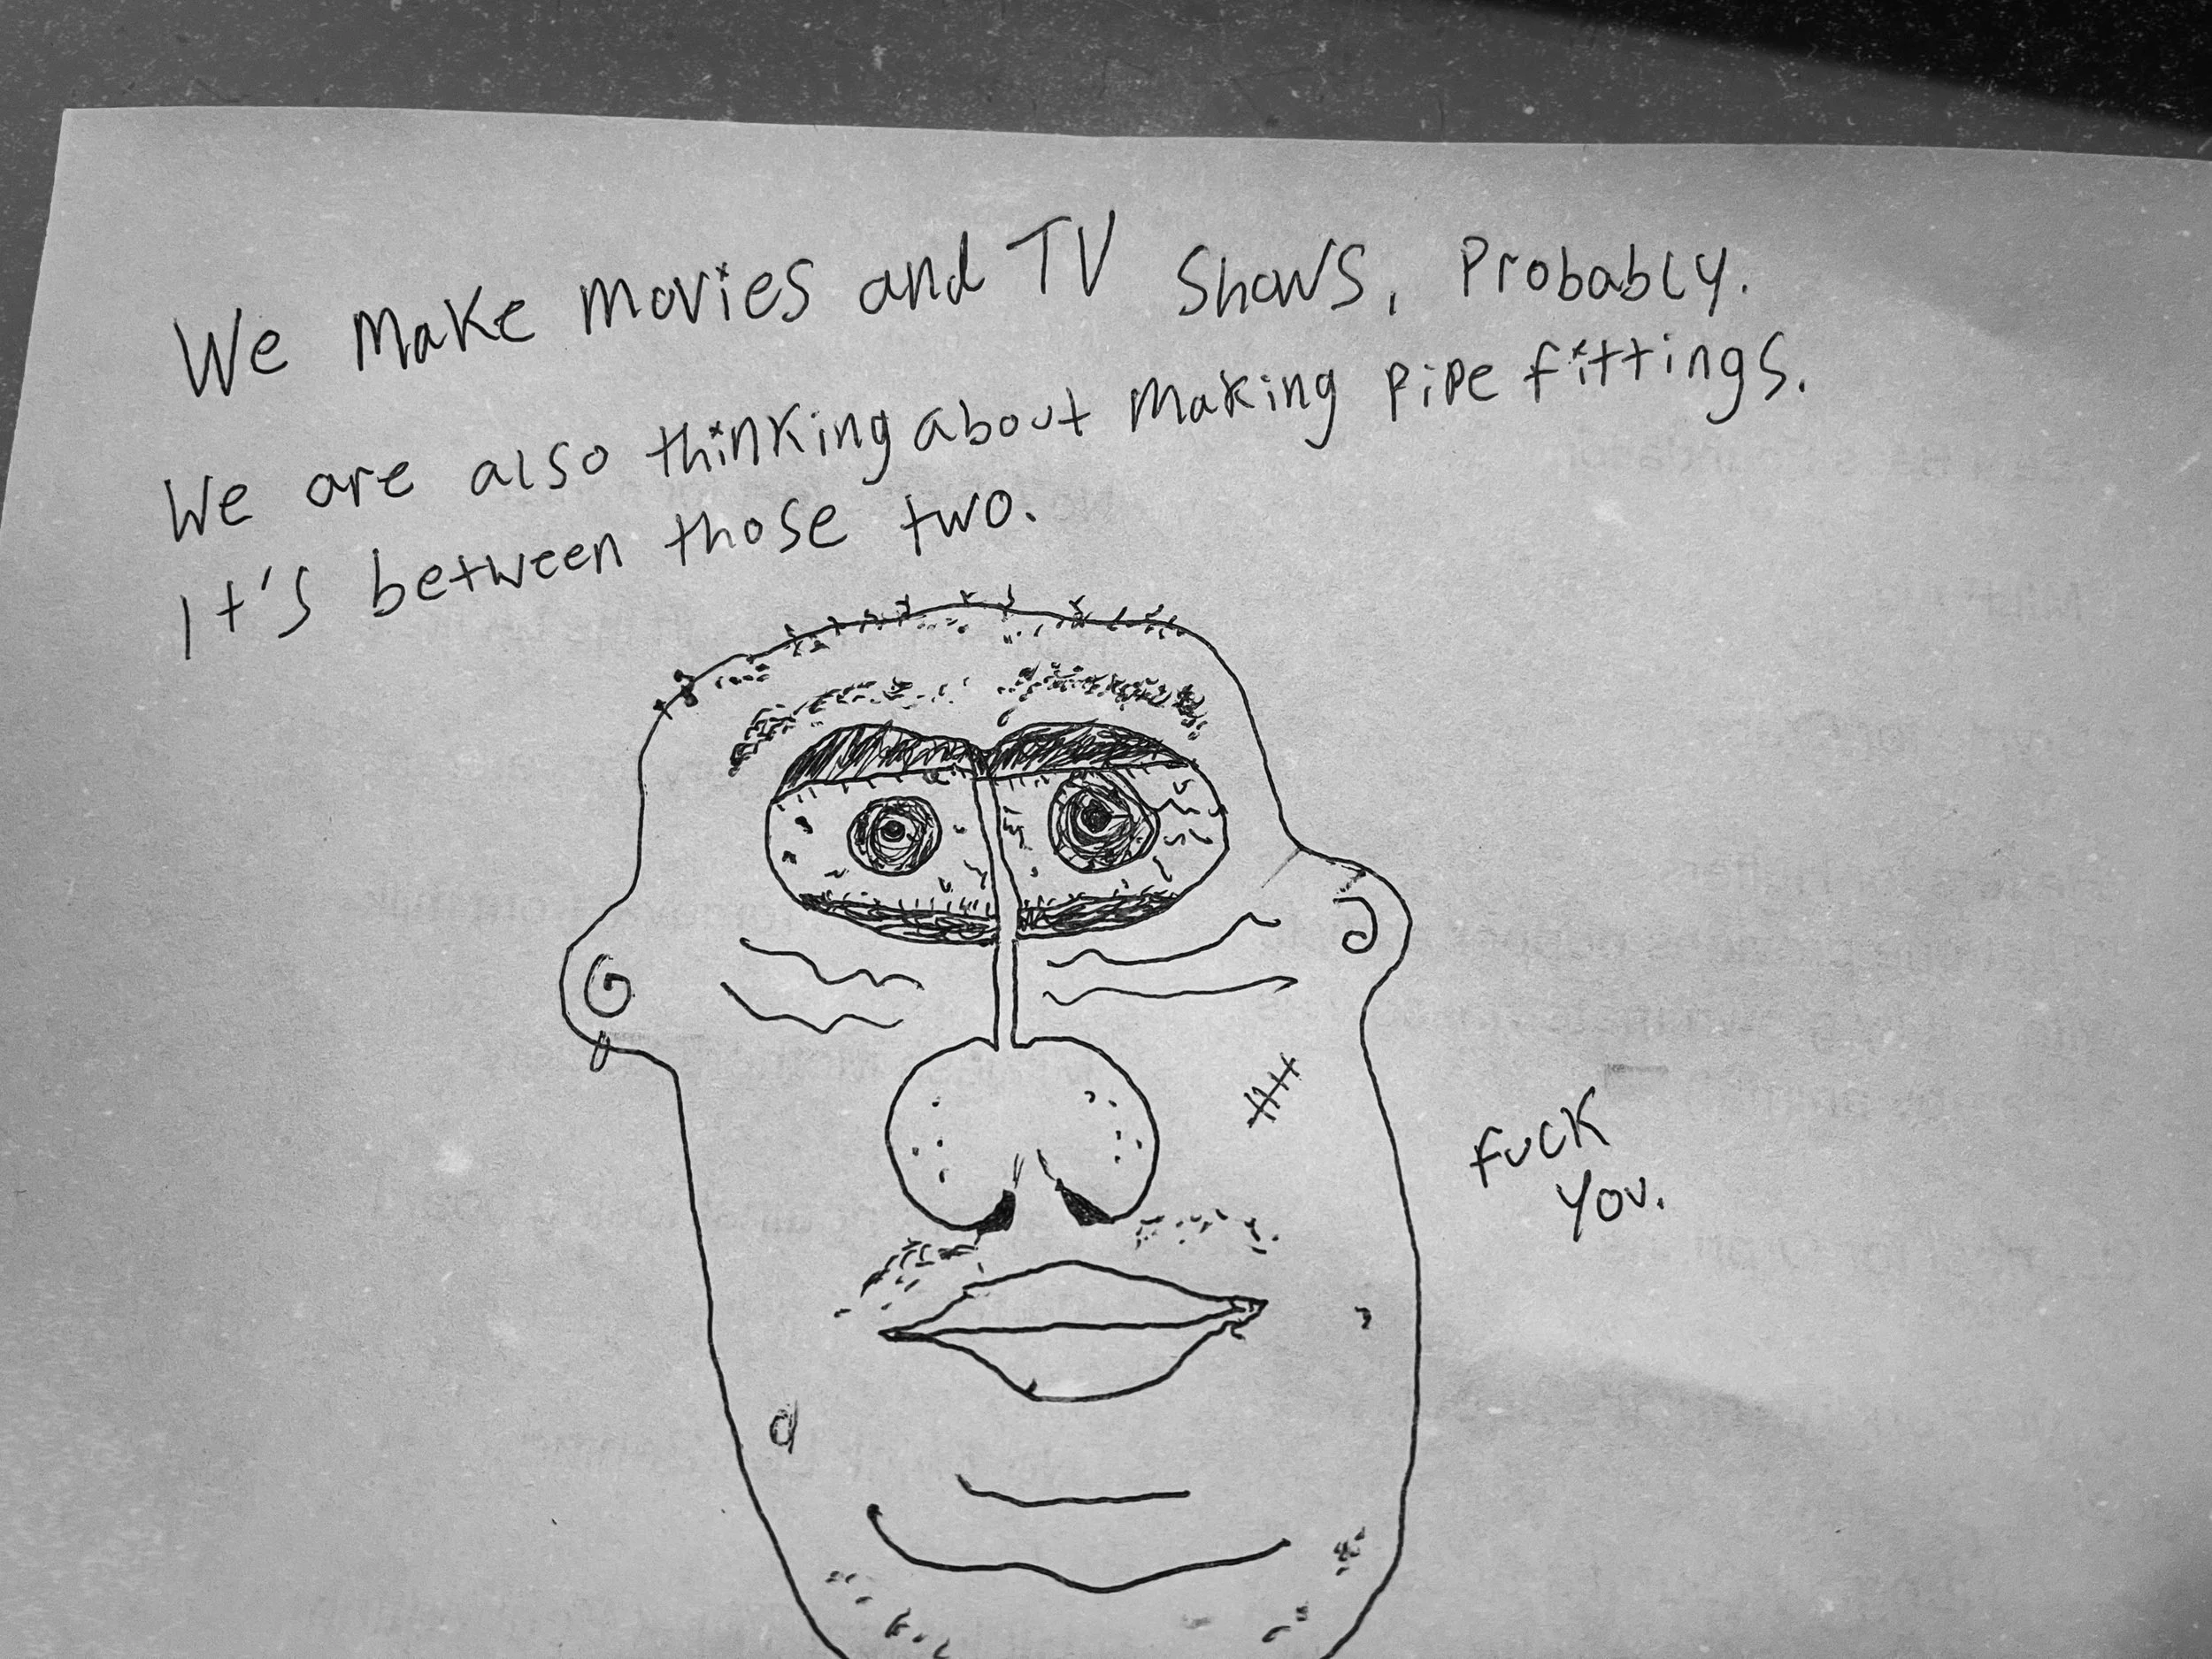 We make movies and TV shows, probably.
We are also thinking about making pipe fittings.
It's between those two.
fuck
you.